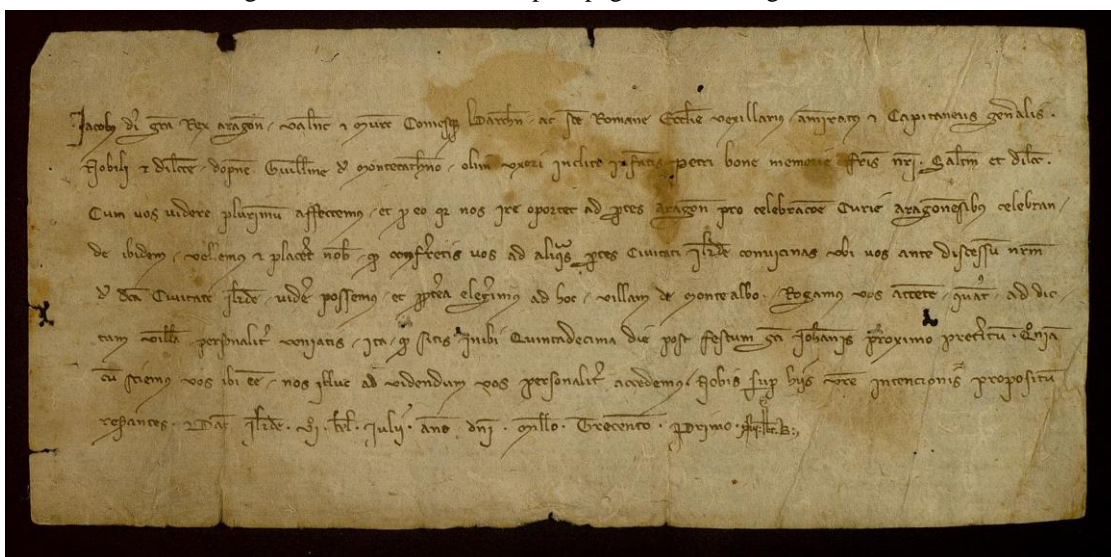 Jacobus dei gra Rex aragon valent et Murc Comesque Barchn ac sce Romane Ecclie vexillarius amiratus et Capitaneus gen̄alis.
Nobili et dilcte dopne Guillme de Montecatheno olim uxori inclite Infantis Petri bone memorie fris nri. Saltm et dilcc.
Cum vos videre plurimū affectemus et p eo qr nos ire oportet ad ptes aragon pro celebracoe Curie aragonesibus celebran
de ibidem, vellemus et placet nob qp vos ad aliqas ptes Civitati Ilrde convicinas ubi vos ante discessū nrm
de dcta Civitate Ilrde vide possemus et ppterea elegimus ad hoc villam de Montealbo. Rogamus vos attete quat ad dic
tam villā personalit veniatis, ita qp sitis inibi Quintadecima die post festum sci Johanis proximo Qnia
cū sciemus vos ibi ee, nos illuc ad videndum vos personalit accedemus. Nobis sup hiis vre intencionis propositū
Dat Ilrde. VI. kl. Julii. ano dni. Millo. Trecento. Primo.